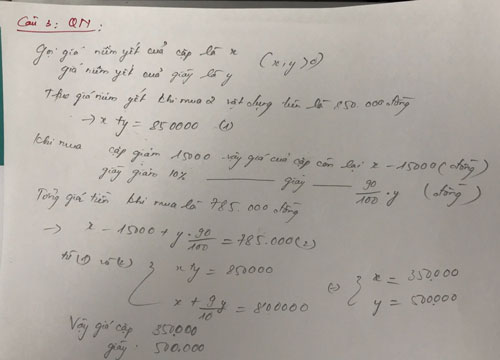 Câu 3: QN:
Gọi giá niêm yết của cặp là x (x, y > 0)
giá niêm yết của giày là y
Theo giá niêm yết khi mua 2 vật dụng trên là 850.000 đồng
→ x + y = 850000 (1)
Khi mua cặp giảm 15000 vậy giá của cặp còn lại x - 15000 (đồng)
giày giảm 10% ——— giày —— 90/100 . y (đồng)
Tổng giá tiền khi mua là 785.000 đồng
→ x - 15000 + y . 90/100 = 785.000 (2)
từ (1) và (2) { x + y = 850000
x + 9/10 y = 800000 (=) { x = 350.000
y = 500.000
Vậy giá cặp 350.000
giày : 500.000